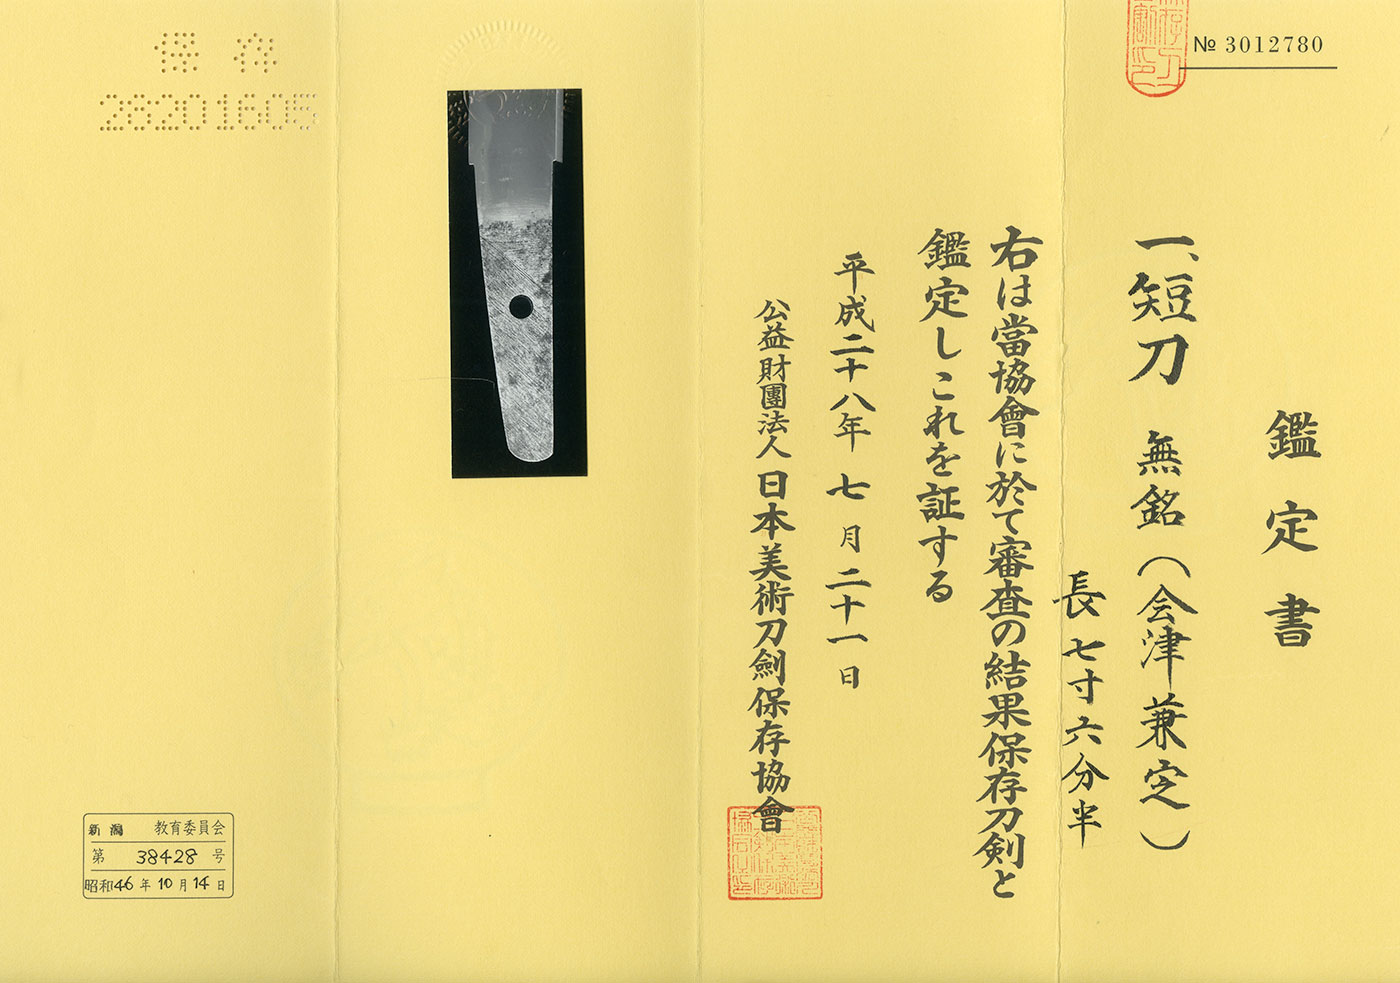 № 3012780
鑑定書
一、短刀 無銘(会津兼定)
長七寸六分半
右は當協會に於て審査の結果保存刀剣と
鑑定しこれを証する
平成二十八年七月二十一日
公益財團法人日本美術刀劍保存協會
保存
28201605
新潟 教育委員会
第 38428 号
昭和46年10月14日